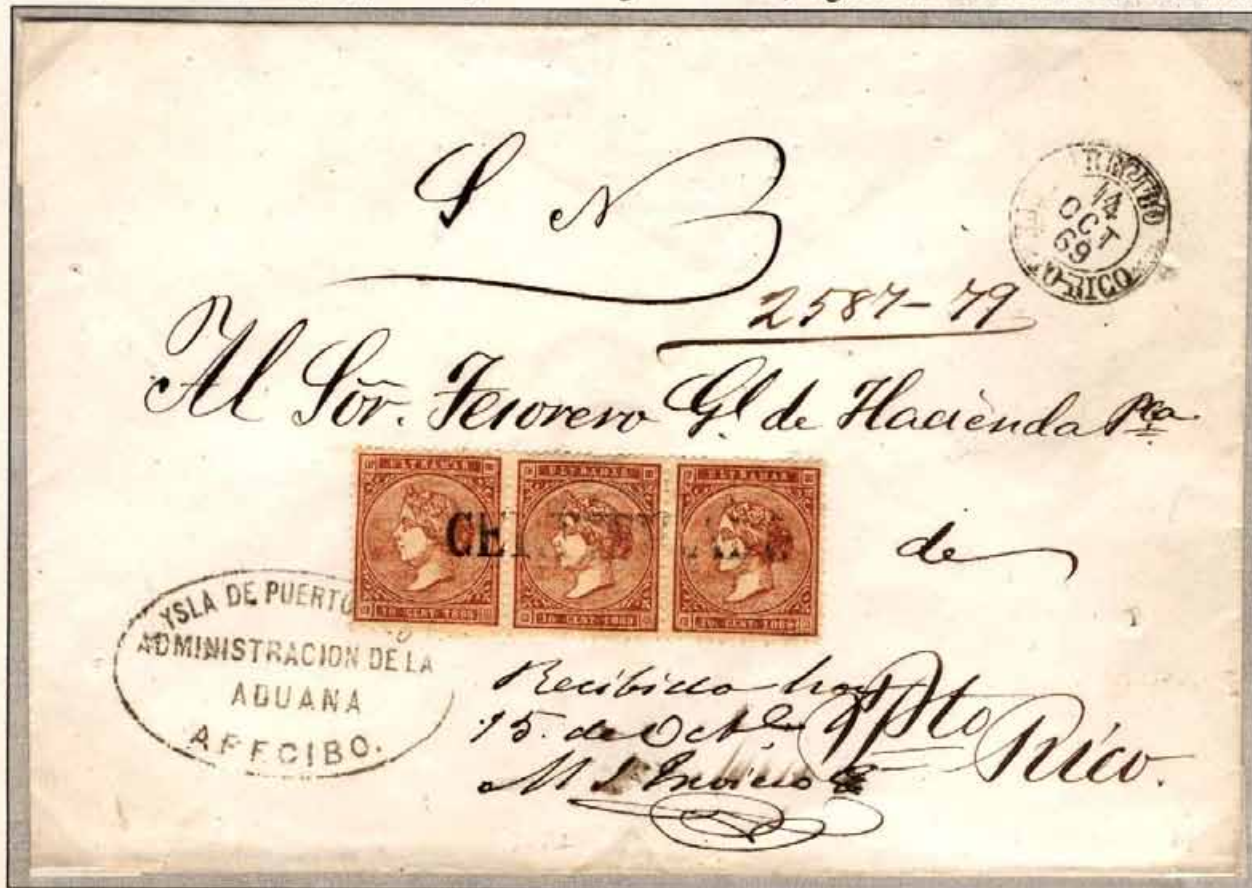 S N
ARECIBO
14
OCT
69
PTO-RICO
2587-79
Al Sõr. Tesorero Gl. de Hacienda Pca
ULTRAMAR ULTRAMAR ULTRAMAR
CERTIFICADO
10 CENT 1869 10 CENT 1869 10 CENT 1869
de
YSLA DE PUERTO
ADMINISTRACION DE LA
ADUANA
ARECIBO.
Recibido hoy
15. de Octe
Pto Rico.